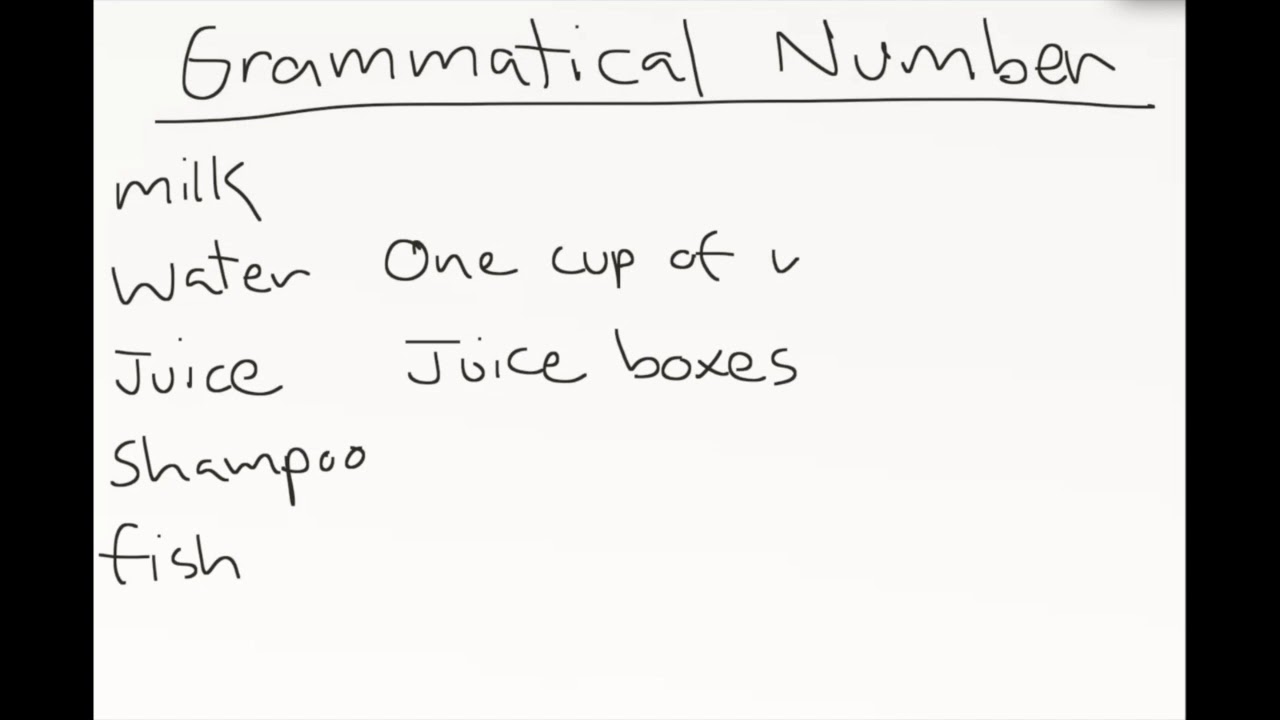 Grammatical Number
milk
Water One cup of
Juice Juice boxes
Shampoo
fish